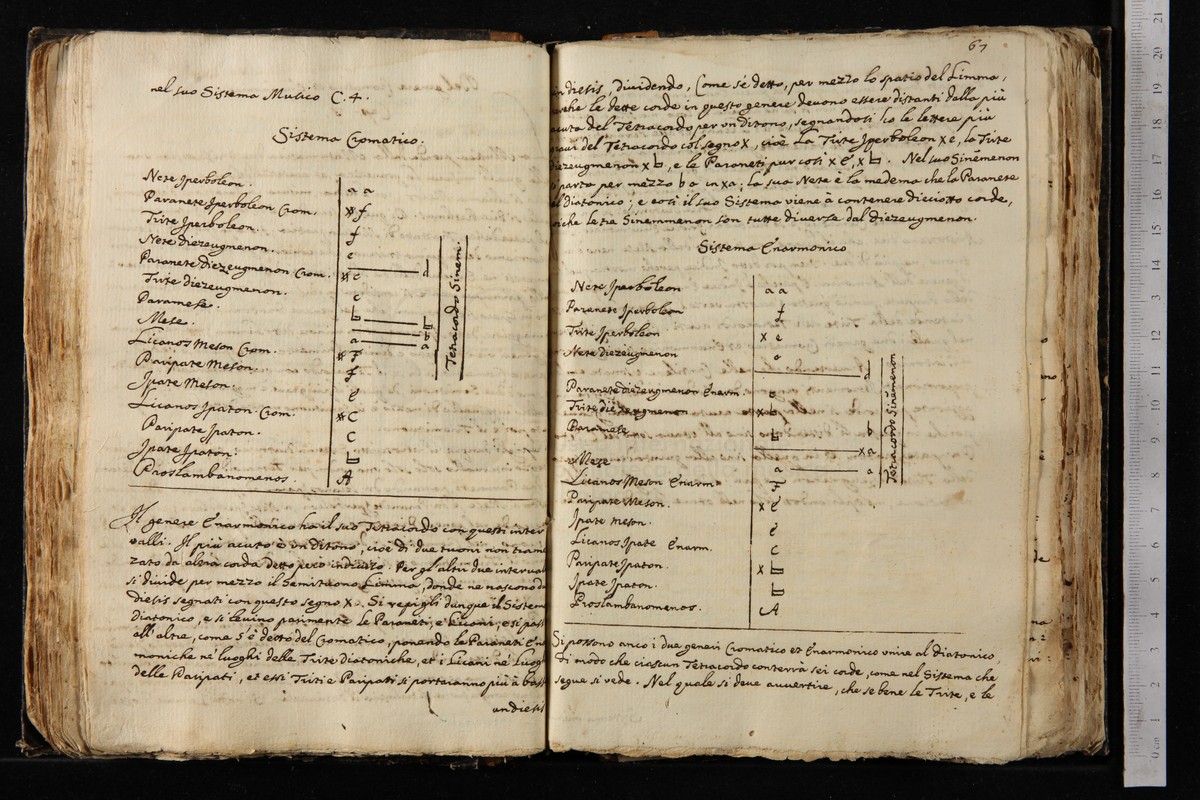 nel suo Sistema Musico C. 4.
Sistema Cromatico.
Nete Iperboleon. a a
Paranete Iperboleon Crom. ※ f
Trite Iperboleon. f
Nete diezeugmenon. e
Paranete diezeugmenon Crom. ※ c d
Trite diezeugmenon. c
Paramese. ♮
Mese. a
Licanos Meson Crom. ※ F
Paripate Meson. F
Ipate Meson. E
Licanos Ipaton Crom. ※ C
Paripate Ipaton. C
Ipate Ipaton. ♮
Proslambanomenos. A
Tetracordo Sinem.
Il genere Enarmonico ha il suo Tetracordo con questi inter
valli. Il più acuto è un ditono, cioè di due tuoni non trami
zato da altra corda detto pero indiviso. Per gl'altri due interval
si divide per mezzo il Semituono Limma, donde ne nascono d
diesis segnati con questo segno X. Si repigli dunque il Sistem
diatonico, e si levino parimente le Paraneti, e Licani; e si pass
all'altro, come s'è detto del Cromatico, ponendo le Paraneti En
moniche ne' luoghi delle Trite diatoniche, et i Licani ne' Luog
delle Paripati, et essi Triti e Paripati si portaranno più à bass
un diesis
67
un diesis, dividendo, Come s'è detto, per mezzo lo spatio del Limma,
perche le dette corde in questo genere devono essere distanti dalla più
acuta del Tetracordo per un Ditono, segnandosi le lettere più
gravi del Tetracordo col segno X, cioè La Trite Iperboleon x e, la Trite
diezeugmenon x ♮, e le Paraneti pur cosi x E, x ♮. Nel suo Sinemenon
si parta per mezzo b a in x a, la sua Nete è la medema che la Paranete
al Diatonico; e così il suo Sistema viene à contenere dieciotto corde,
poiche le tre Sinemmenon son tutte diverse dal diezeugmenon.
Sistema Enarmonico
Nete Iperboleon a a
Paranete Iperboleon f
Trite Iperboleon x e
Nete diezeugmenon e
d
Paranete diezeugmenon Enarm. c
Trite diezeugmenon x ♮
Paramese ♮ b
x a
Mese a a
Licanos Meson Enarm. F
Paripate Meson. x E
Ipate Meson. E
Licanos Ipate Enarm. C
Paripate Ipaton. x ♮
Ipate Ipaton. ♮
Proslambanomenos. A
Tetracordo Sinemenon
Si possono anco i due generi Cromatico et Enarmonico unire al Diatonico,
di modo che ciascun Tetracordo conterrà sei corde, come nel Sistema che
segue si vede. Nel quale si deve avvertire, che se bene le Trite, e le